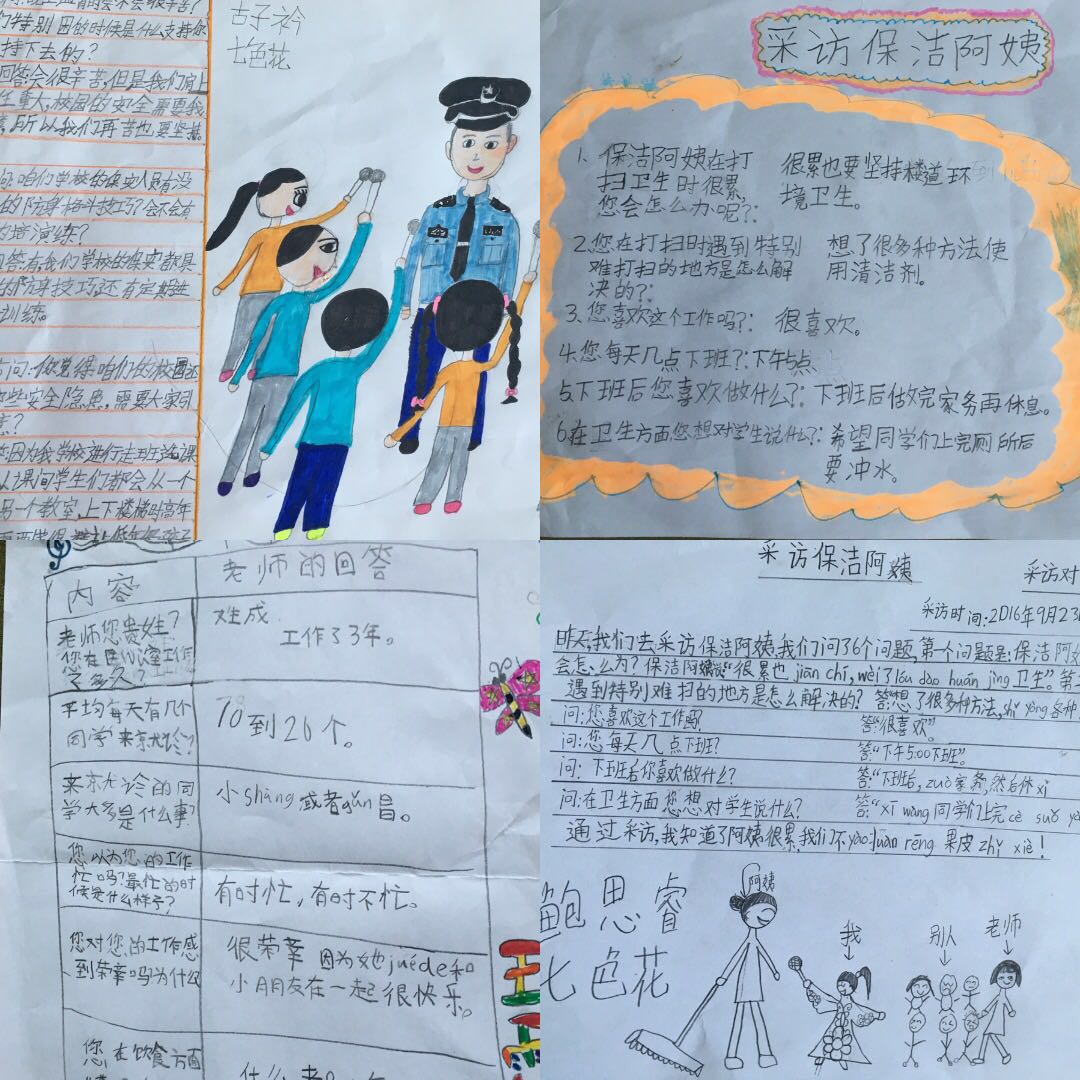 们特别困的时候是什么支持你
持下去的?
回答会很辛苦,但是我们肩上
生重大,校园的安全需要我
所以我们再苦也要坚持。
问:咱们学校的保安人员有没
演练?
训练。
全隐患,需要大家
因为我学校进行走班
课间学生们都会从一个
另一个教室,上下楼梯时高年
古子衿
七色花
采访保洁阿姨
1、保洁阿姨在打
扫卫生时很累,
您会怎么办呢?:
很累也要坚持楼道环
境卫生。
2.您在打扫时遇到特别
难打扫的地方是怎么解
决的?:
想了很多种方法使
用清洁剂。
3、您喜欢这个工作吗?: 很喜欢。
4.您每天几点下班?:下午5点
5.下班后您喜欢做什么?:下班后做完家务再休息。
6.在卫生方面您想对学生说什么?:希望同学们上完厕所后
要冲水。
内容
老师的回答
老师您贵姓?
您在医务室工作
多久?
姓成
工作了3年。
平均每天有几个
同学来就诊?
10到20个。
来就诊的同
学大多是什么事?
小shāng或者gǎn冒。
您以为您的工作
忙吗?最忙的时
候是什么样子?
有时忙,有时不忙。
您对您的工作感
到荣幸吗?为什么
很荣幸 因为她juéde和
小朋友在一起很快乐。
您在饮食方面
什么
采访保洁阿姨
采访对
采访时间:2016年9月23
昨天,我们去采访保洁阿姨,我们问了6个问题,第一个问题是:保洁阿
会怎么办?保洁阿姨说"很累也jiān chí,wèi了lóu dào huán jìng卫生"。第二
遇到特别难扫的地方是怎么解决的? 答"想了很多种方法,shǐ yòng各种
问:您喜欢这个工作吗? 答:"很喜欢"。
问:您每天几点下班? 答:"下午5:00下班"。
问:下班后你喜欢做什么? 答:"下班后,zuò家务,然后休xi
问:在卫生方面您想对学生说什么? 答:"xī wàng同学们上完cè suǒ
通过采访,我知道了阿姨很累,我们不yào luàn rēng果皮zhǐ xiè!
鲍思睿
七色花
阿姨
我
别人
老师